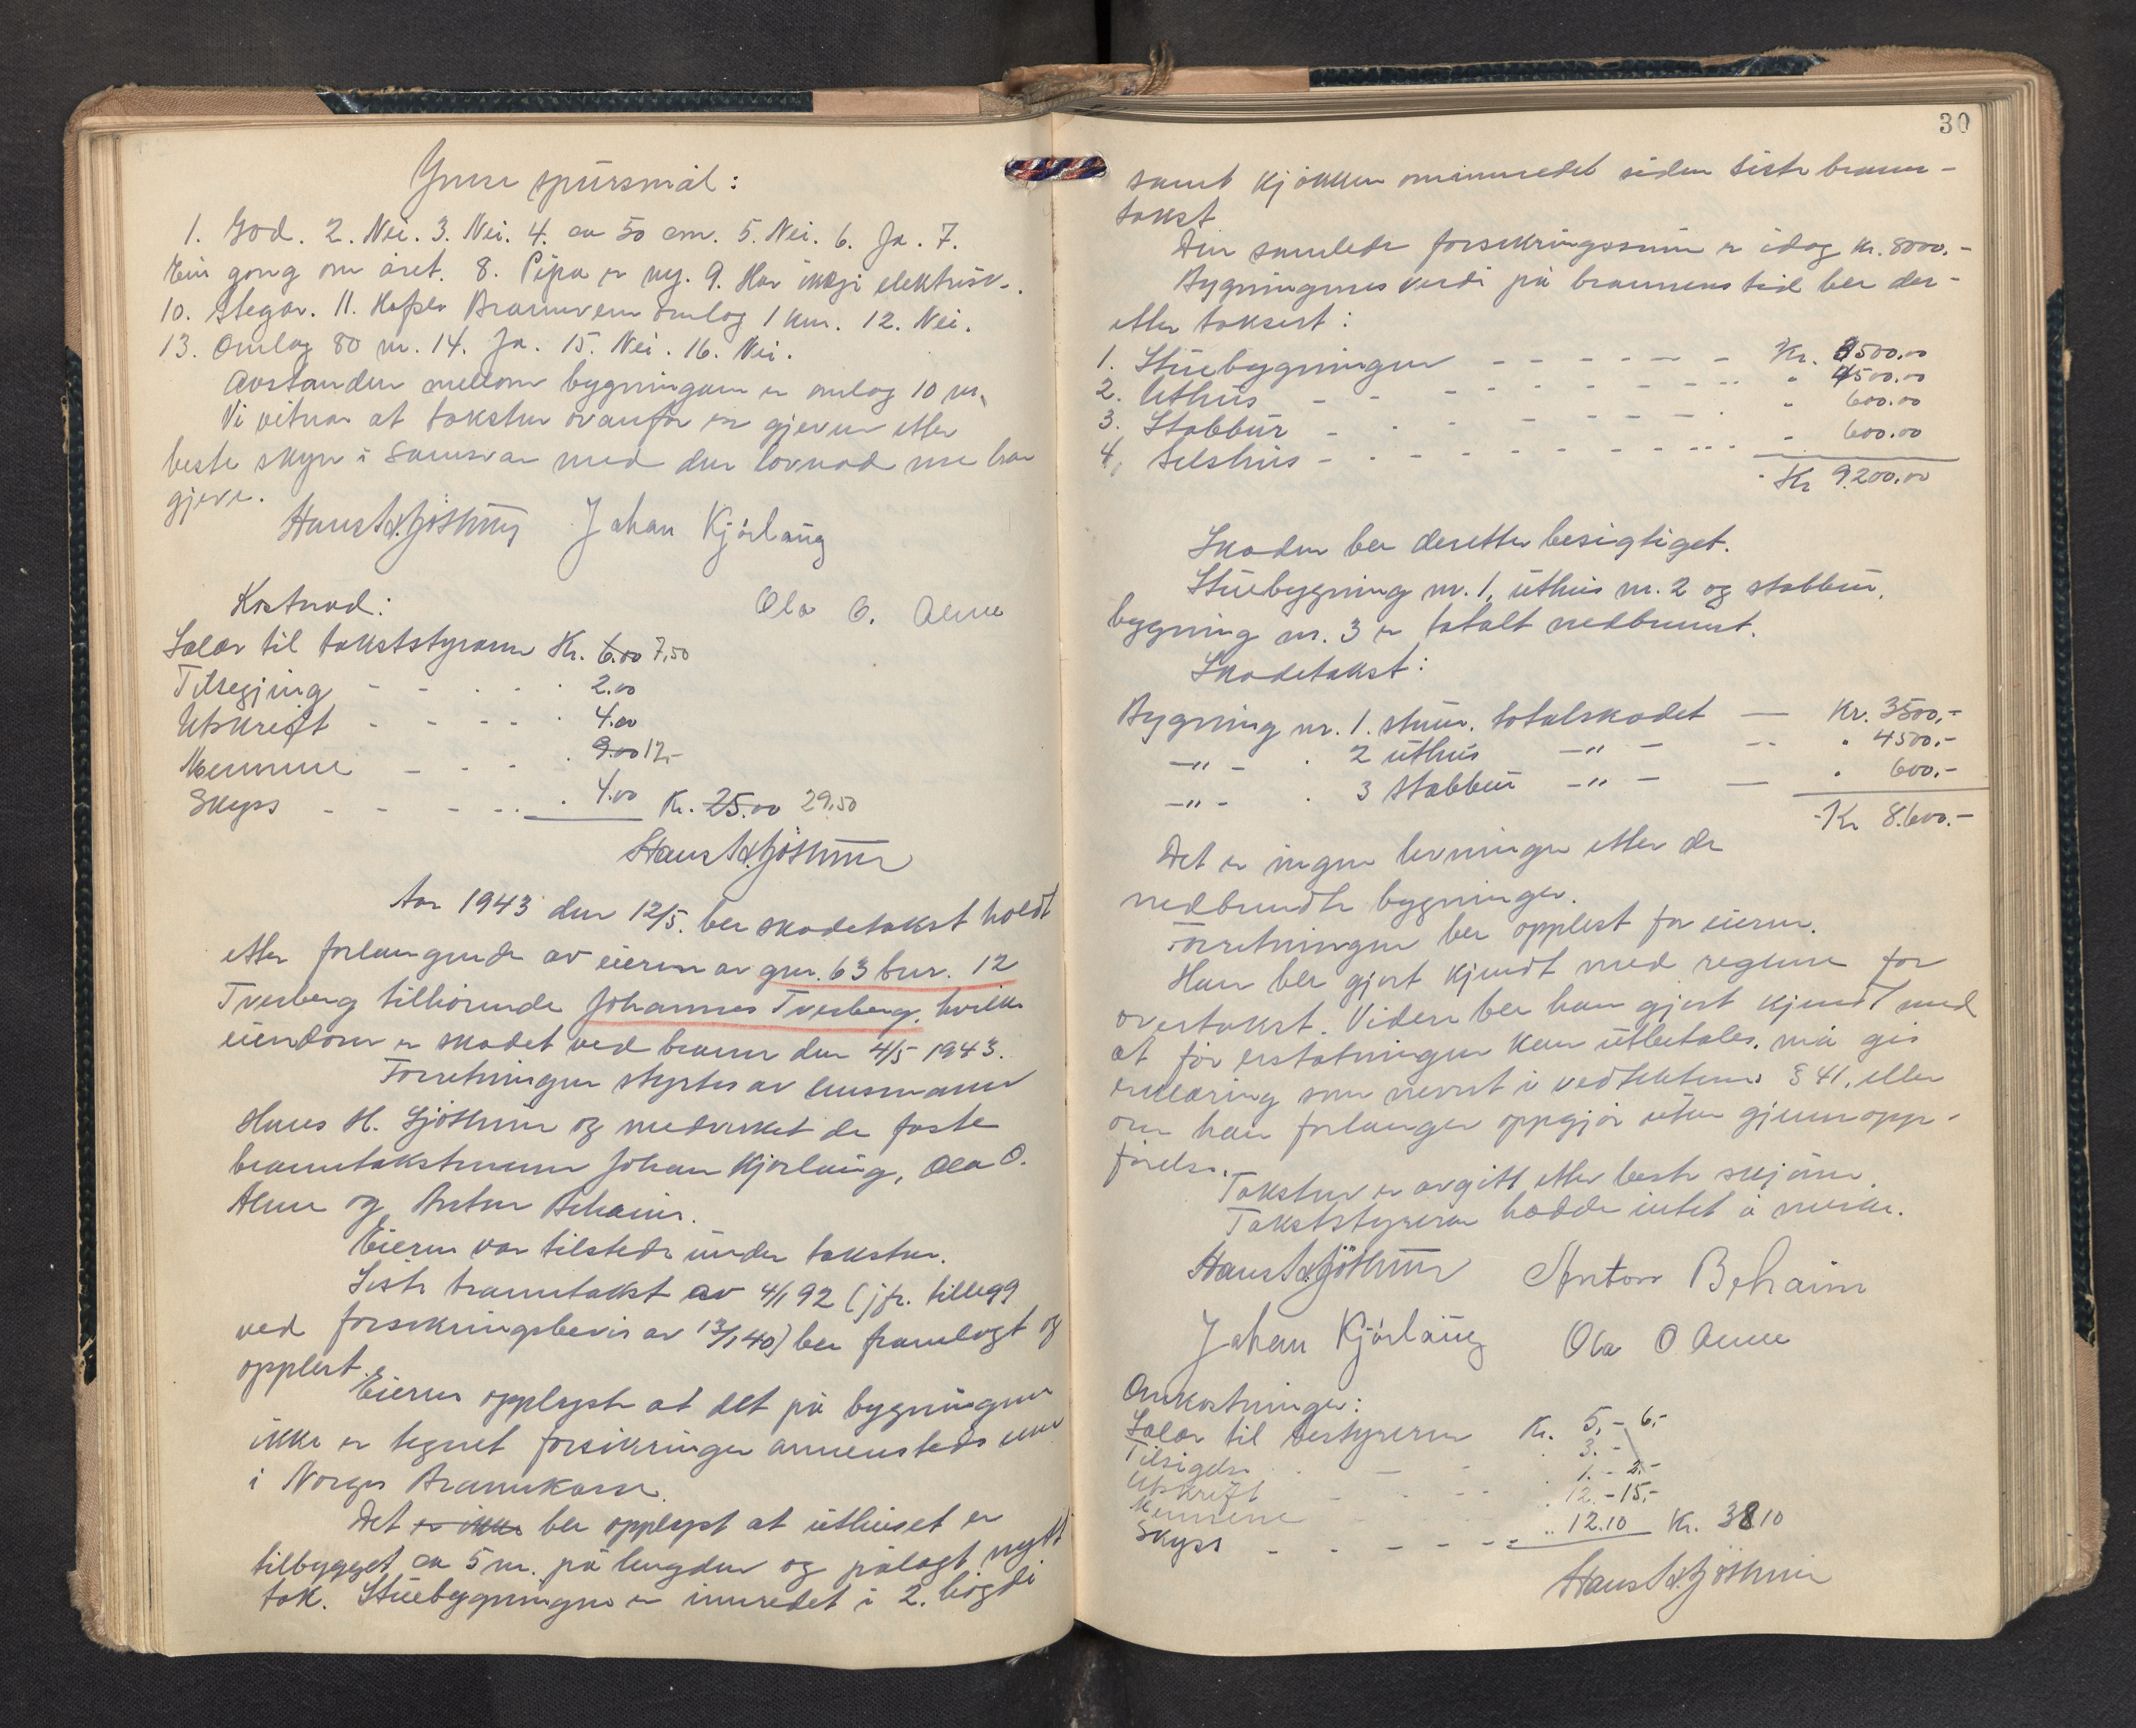 Ymse spursmål:
1. God. 2. Nei. 3. Nei. 4. ca 50 cm. 5. Nei. 6. Ja. 7.
Ein gong om året. 8. Pipa er ny. 9. Har ikkje elektrisk.
10. Stegar. 11. Brannvern omlag 1 km. 12. Nei.
13. Omlag 80 m. 14. Ja. 15. Nei. 16. Nei.
Avstanden mellom bygningane er omlag 10 m.
Vi vitnar at taksten ovanfor er gjeven etter
beste skyn i samsvar med den lovnad me har
gjeve.
Hans H. Johan Kjörlaug
Ola O. Alme
Kostnad:
Salær til takststyraren Kr. 6.00 7,50
Tilsegjing - - - - 2.00
Utskrift - - - - 4.00
Mennene - - - 9.00 12,-
Skyss - - - - 4.00 Kr. 25.00 29,50
Hans H.
Aar 1943 den 12/5. ble skadetakst holdt
etter forlangende av eieren av gnr. 63 bnr. 12
Tverberg tilhörende Johannes Tverberg, hvilke
eiendom er skadet ved brann den 4/5 1943.
Forretningen styrtes av lensmann
Hans H. og medvirket de faste
branntakstmenn Johan Kjörlaug, Ola O.
Alme og Anton Behaim.
Eieren var tilstede under taksten.
Siste branntakst av 4/1 92 (jfr. tillegg
ved forsikringsbevis av 13/1 40) ble framlagt og
opplest.
Eieren opplyste at det på bygningene
ikke er tegnet forsikringer annensteds enn
i Norges Brannkasse.
Det er ikke ble opplyst at uthuset er
tilbygget ca 5 m. på lengden og pålagt nytt
tak. Stuebygningen er innredet i 2. högd
30
samt kjökken ominnredet siden siste brann-
takst
Den samlede forsikringssum er idag kr. 8000.-
Bygningenes verdi på brannens tid ble der-
etter taksert:
1. Stuebygningen - - - - - - Kr. 3500.00
2. Uthus - - - - - - - " 4500.00
3. Stabbur - - - - - - - " 600.00
4. Selshus - - - - - - - - " 600.00
Kr 9.200.00
Skaden ble deretter besigtiget.
Stuebygning nr. 1, uthus nr. 2 og stabbur,
bygning nr. 3 er totalt nedbrunnt.
Skadetakst:
Bygning nr. 1. stuen. totalskadet — Kr. 3500,-
—"— . 2 uthus —"— -- " 4500.-
—"— . 3 stabbur —"— — " 600.-
Kr 8.600.-
Det er ingen levninger etter de
nedbrendte bygninger.
Forretningen ble opplest for eieren.
Han ble gjort kjendt med reglene for
overtakst. Videre ble han gjort kjendt med
at för erstatningen kan utbetales, må gis
erklæring som nevnt i vedtektenes § 41, eller
om han forlanger oppgjör uten gjennopp-
förelse.
Taksten er avgitt etter beste skjönn.
Takststyreren hadde intet å merke.
Hans H. Anton Behaim
Johan Kjörlaug Ola O Alme
Omkostninger:
Salær til bestyreren Kr. 5,- 6,-
Tilsigelse . - - . 3.-
Utskrift - - - - . 1.- 2,-
Mennene - - . 12.- 15,-
Skyss - - - - - - .. 12.10 Kr. 38 10
Hans H.